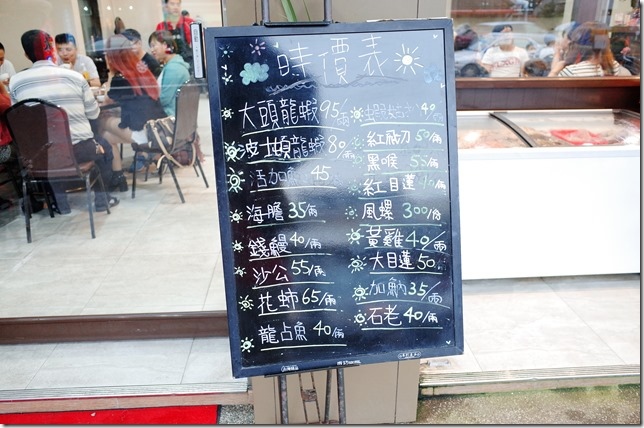 時價表
大頭龍蝦 95/兩
波士頓龍蝦 80/兩
活加魶 45
海膽 35/兩
錢鰻 40/兩
沙公 55/兩
花蚵 65/兩
龍占魚 40/兩
40/兩
紅 刀 50/兩
黑喉 55/兩
紅目蓮 40/兩
風螺 300/份
黃雞 40/兩
大目蓮 50/兩
加魶 35/兩
石老 40/兩